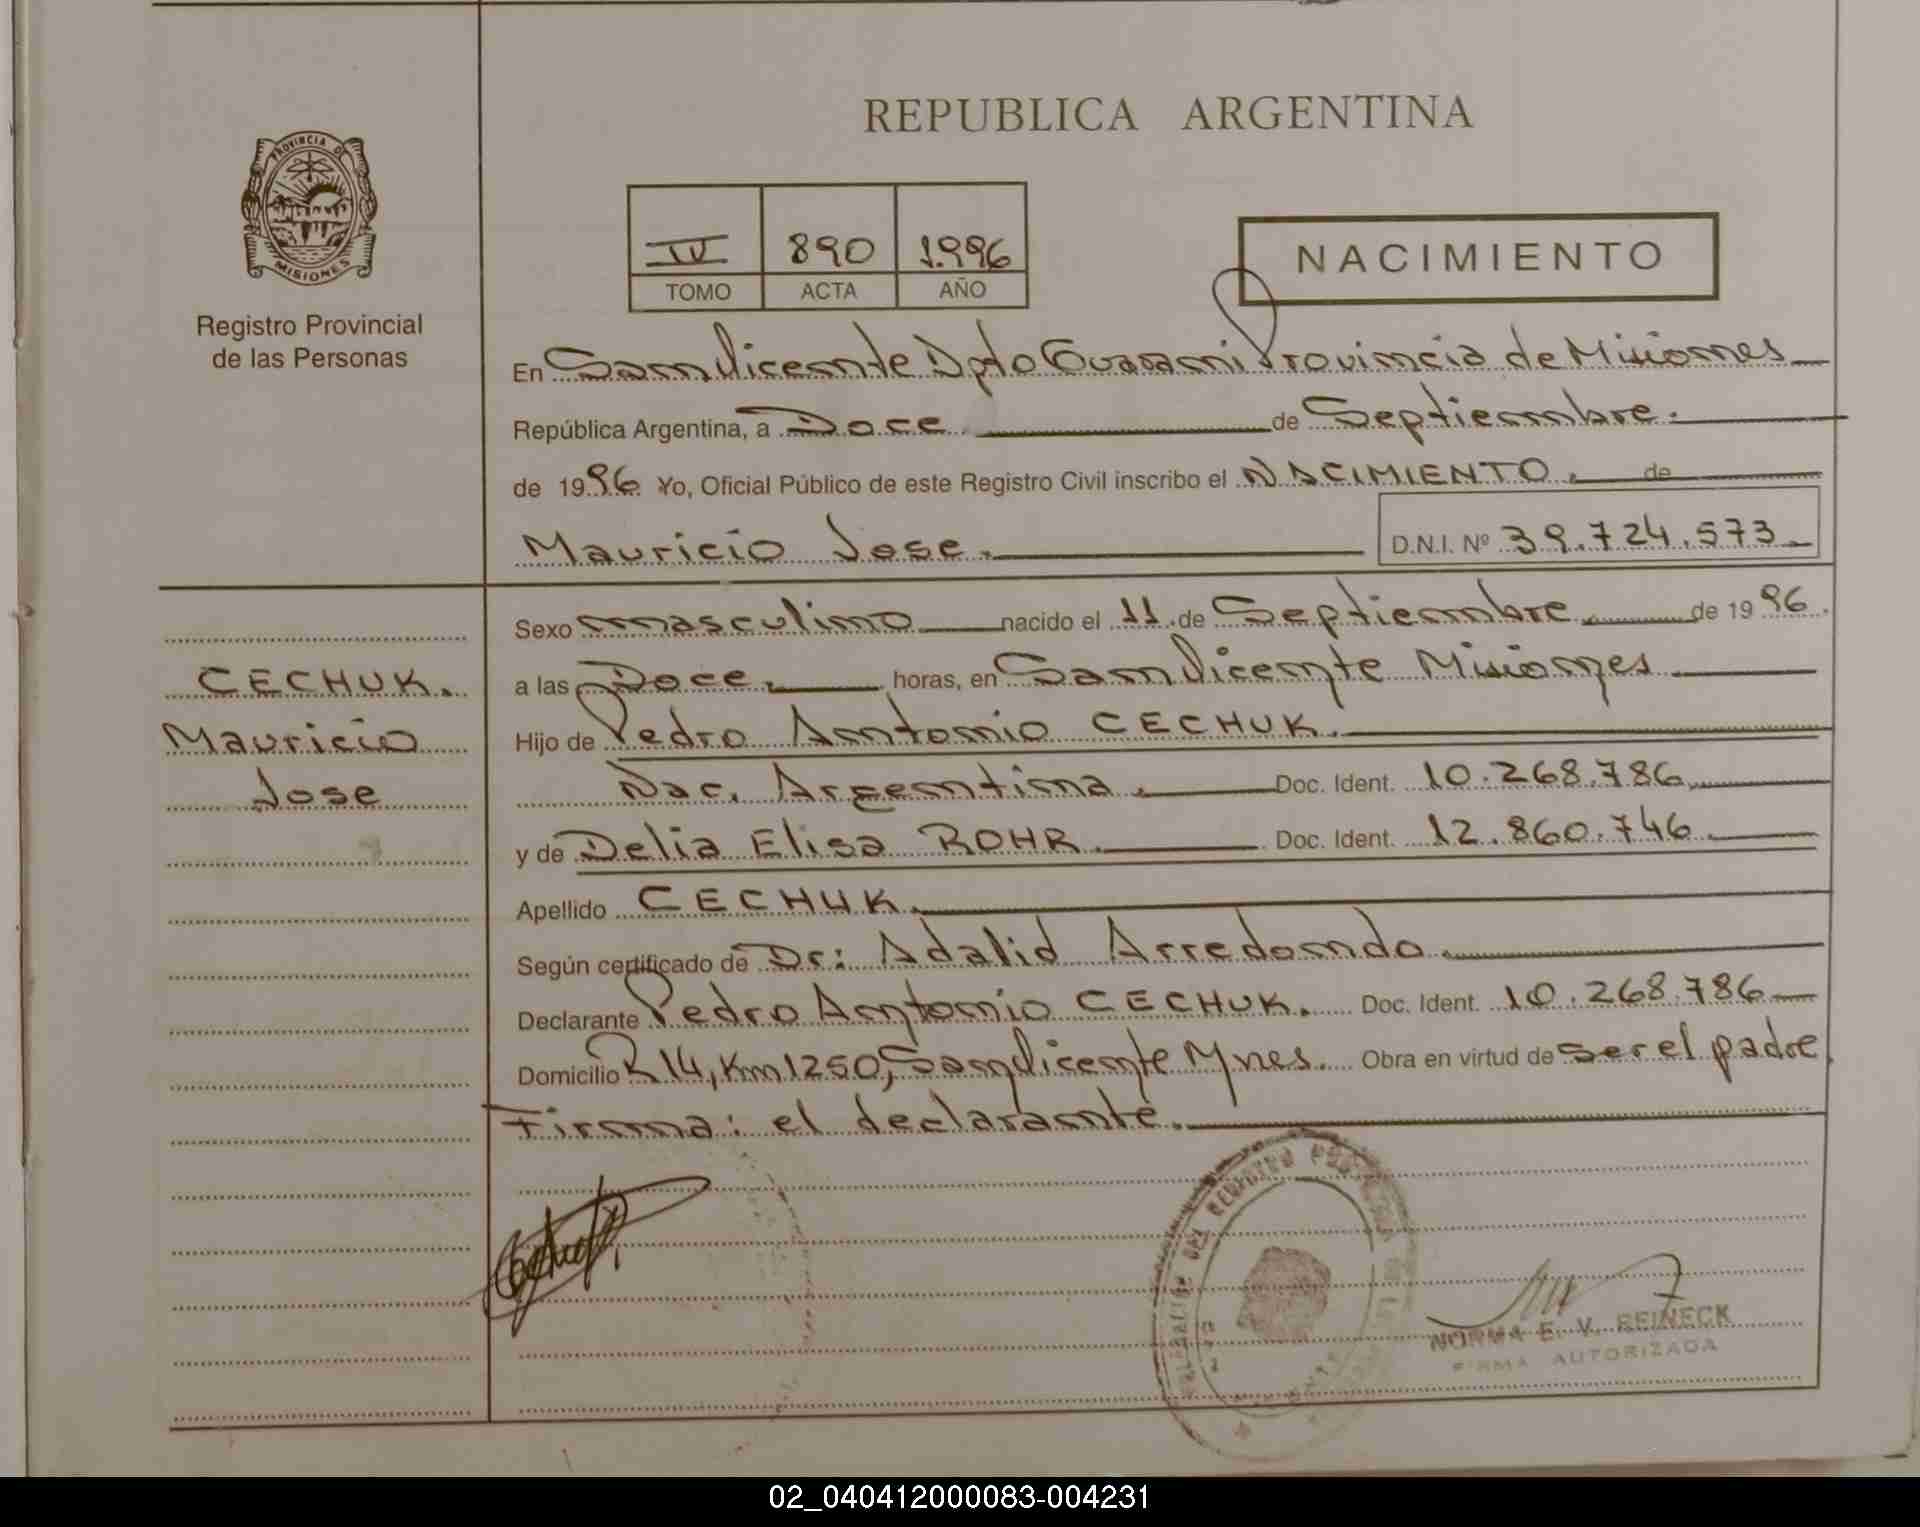 REPUBLICA ARGENTINA
PROVINCIA DE
MISIONES
Registro Provincial
de las Personas
IV 890 1.996
TOMO ACTA AÑO
NACIMIENTO
En San Vicente Dpto Guarani Provincia de Misiones
República Argentina, a Doce de Septiembre.
de 1996. Yo, Oficial Público de este Registro Civil inscribo el NACIMIENTO. de
Mauricio Jose. D.N.I. Nº 39.724.573.
Sexo masculino nacido el 11 de Septiembre. de 1996.
a las Doce. horas, en San Vicente Misiones
Hijo de Pedro Antonio CECHUK.
Nac. Argentina. Doc. Ident. 10.268.786
y de Delia Elisa ROHR. Doc. Ident. 12.860.746
Apellido CECHUK.
Según certificado de Dr: Adalid Arredondo.
Declarante Pedro Antonio CECHUK. Doc. Ident. 10.268.786
Domicilio R 14, Km 1250, San Vicente Mnes. Obra en virtud de ser el padre.
Firma: el declarante.
CECHUK.
Mauricio
Jose
NORMA E. V. REINECK
FIRMA AUTORIZADA
02_040412000083-004231